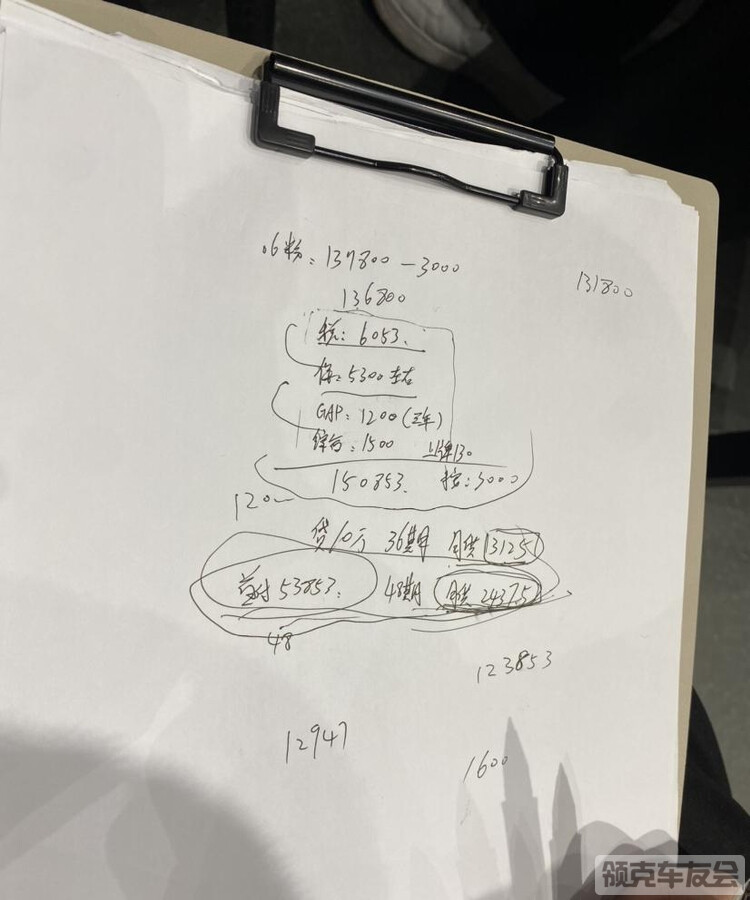 06粉：137800－3000
131800
136800
税：6053.
保：5300左右
GAP：1200(三年)
综合：1500 上牌130
150853. 按：3000
120
贷10万 36期 月供 3125
首付53853. 48期 月供 2437.5
48
123853
12947
1600
领克车友会